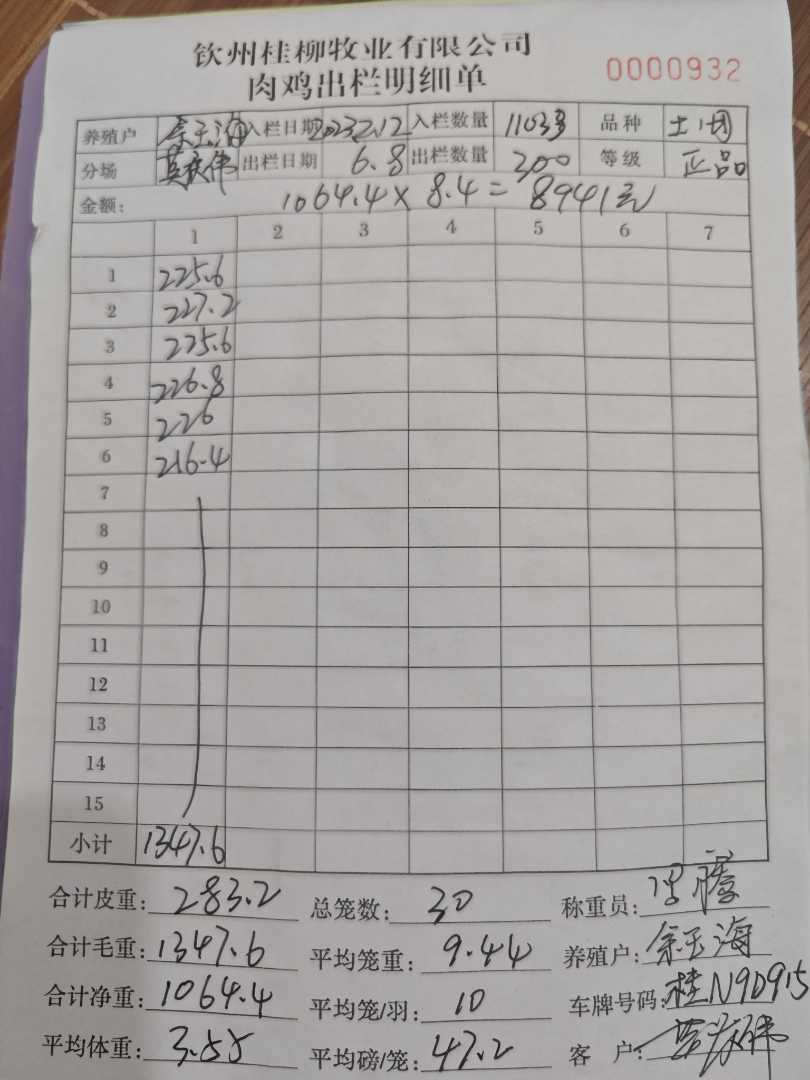 钦州桂柳牧业有限公司
肉鸡出栏明细单 0000932
养殖户 余玉海 入栏日期 2023.2.12 入栏数量 11033 品种 土1团
分场 出栏日期 6.8 出栏数量 300 等级 正品
金额: 1064.4×8.4=8941元
1 2 3 4 5 6 7
1 225.6
2 227.2
3 225.6
4 226.8
5 226
6 216.4
7
8
9
10
11
12
13
14
15
小计 1347.6
合计皮重: 283.2 总笼数: 30 称重员: 腾
合计毛重: 1347.6 平均笼重: 9.44 养殖户: 余玉海
合计净重: 1064.4 平均笼/羽: 10 车牌号码: 桂N9D915
平均体重: 3.55 平均磅/笼: 47.2 客 户: